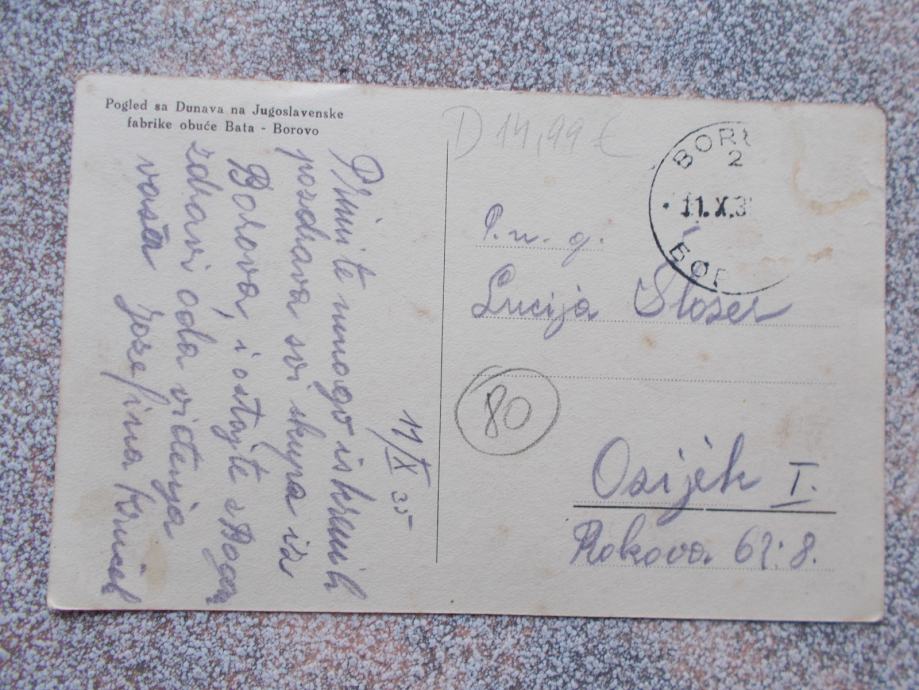 Pogled sa Dunava na Jugoslavenske
fabrike obuće Bata - Borovo
11/X 35
Primite mnogo iskrenih
pozdrava svi skupa iz
Borova, i ostajte s Bogom
zdravi oda viđenja
vaša Jozefina
D 14,99 €
BOR
2
11.X.3
БОР
P. n. g.
Lucija Šloser
80
Osijek I.
Rokova 62: 8.